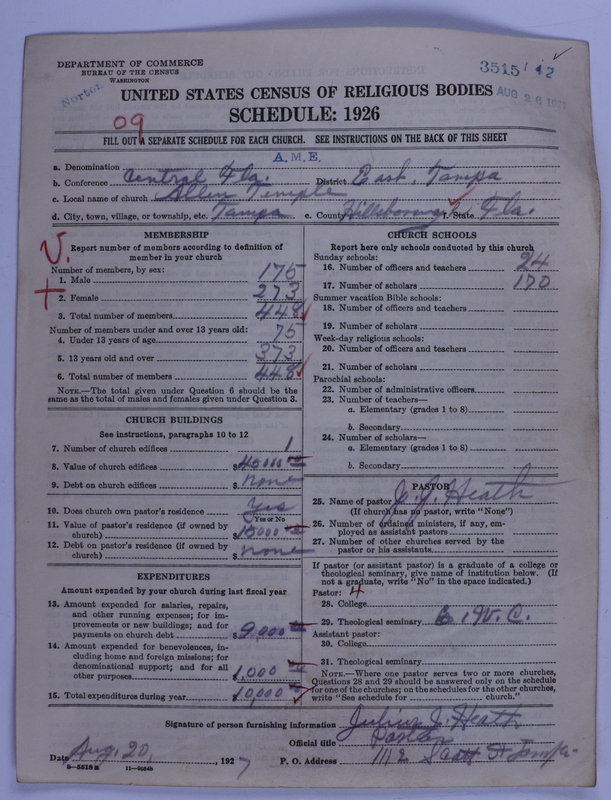 DEPARTMENT OF COMMERCE
BUREAU OF THE CENSUS
WASHINGTON
Norton
3515 12
AUG 26 1927
UNITED STATES CENSUS OF RELIGIOUS BODIES
SCHEDULE: 1926
09
FILL OUT A SEPARATE SCHEDULE FOR EACH CHURCH. SEE INSTRUCTIONS ON THE BACK OF THIS SHEET
a. Denomination A.M.E.
b. Conference Central Fla. District East, Tampa
c. Local name of church Allen Temple
d. City, town, village, or township, etc. Tampa e. County Hillsborough f. State Fla.
MEMBERSHIP
Report number of members according to definition of
member in your church
Number of members, by sex:
1. Male 175
2. Female 273
3. Total number of members 448
Number of members under and over 13 years old:
4. Under 13 years of age 75
5. 13 years old and over 373
6. Total number of members 448
NOTE.—The total given under Question 6 should be the
same as the total of males and females given under Question 3.
CHURCH BUILDINGS
See instructions, paragraphs 10 to 12
7. Number of church edifices 1
8. Value of church edifices $40000
9. Debt on church edifices $ none
10. Does church own pastor's residence Yes
Yes or No
11. Value of pastor's residence (if owned by
church) $15000
12. Debt on pastor's residence (if owned by
church) $ none
EXPENDITURES
Amount expended by your church during last fiscal year
13. Amount expended for salaries, repairs,
and other running expenses; for im-
provements or new buildings; and for
payments on church debt $9,000
14. Amount expended for benevolences, in-
cluding home and foreign missions; for
denominational support; and for all
other purposes $1,000
15. Total expenditures during year $10,000
CHURCH SCHOOLS
Report here only schools conducted by this church
Sunday schools:
16. Number of officers and teachers 24
17. Number of scholars 170
Summer vacation Bible schools:
18. Number of officers and teachers
19. Number of scholars
Week-day religious schools:
20. Number of officers and teachers
21. Number of scholars
Parochial schools:
22. Number of administrative officers
23. Number of teachers—
a. Elementary (grades 1 to 8)
b. Secondary
24. Number of scholars—
a. Elementary (grades 1 to 8)
b. Secondary
PASTOR
25. Name of pastor J. J. Heath
(If church has no pastor, write "None")
26. Number of ordained ministers, if any, em-
ployed as assistant pastors
27. Number of other churches served by the
pastor or his assistants
If pastor (or assistant pastor) is a graduate of a college or
theological seminary, give name of institution below. (If
not a graduate, write "No" in the space indicated.)
Pastor: 4
28. College
29. Theological seminary
Assistant pastor:
30. College
31. Theological seminary
NOTE.—Where one pastor serves two or more churches,
Questions 28 and 29 should be answered only on the schedule
for one of the churches; on the schedules for the other churches,
write "See schedule for church."
Signature of person furnishing information Julius J. Heath
Official title Pastor
Date Aug. 20, 1927 P. O. Address 1112 Scott St Tampa
6—5518 a 11—9054b